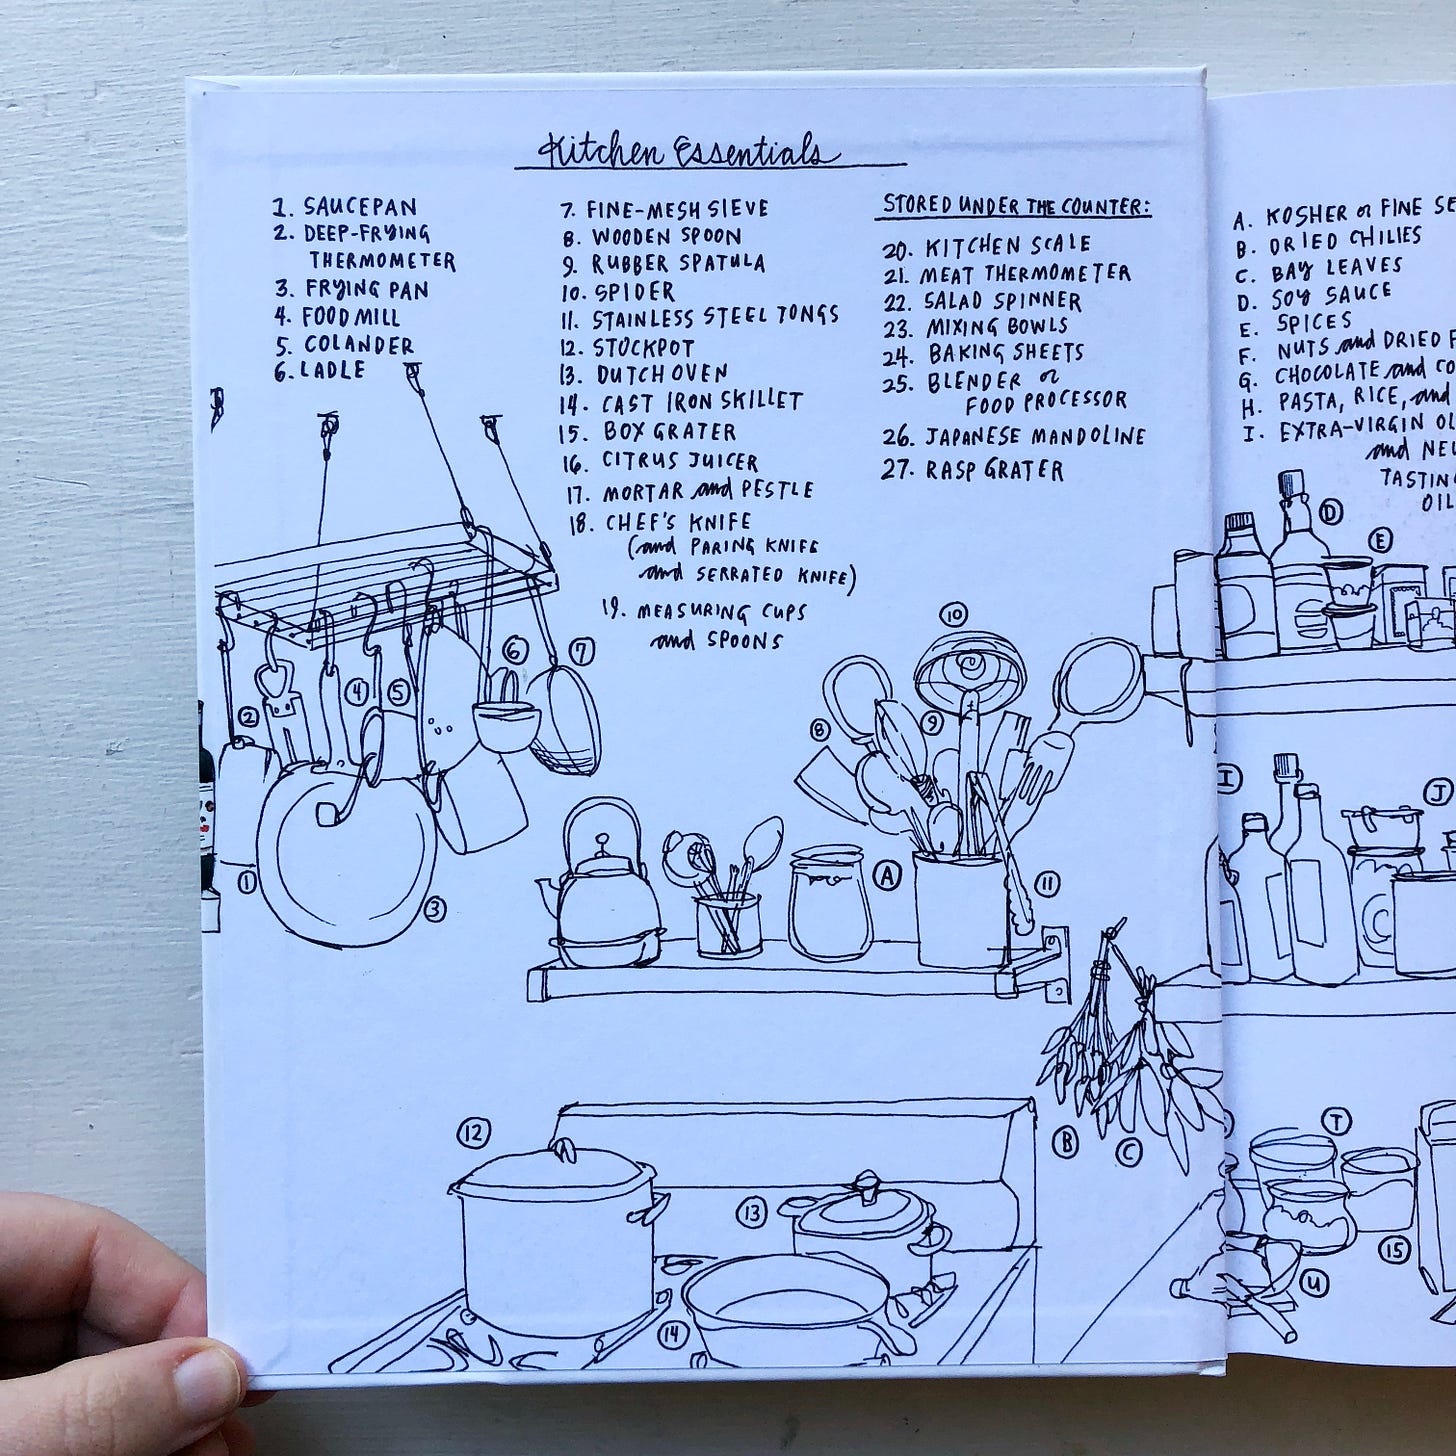 Kitchen Essentials
1. SAUCEPAN
2. DEEP-FRYING
THERMOMETER
3. FRYING PAN
4. FOOD MILL
5. COLANDER
6. LADLE
7. FINE-MESH SIEVE
8. WOODEN SPOON
9. RUBBER SPATULA
10. SPIDER
11. STAINLESS STEEL TONGS
12. STOCKPOT
13. DUTCH OVEN
14. CAST IRON SKILLET
15. BOX GRATER
16. CITRUS JUICER
17. MORTAR and PESTLE
18. CHEF'S KNIFE
(and PARING KNIFE
and SERRATED KNIFE)
19. MEASURING CUPS
and SPOONS
STORED UNDER THE COUNTER:
20. KITCHEN SCALE
21. MEAT THERMOMETER
22. SALAD SPINNER
23. MIXING BOWLS
24. BAKING SHEETS
25. BLENDER or
FOOD PROCESSOR
26. JAPANESE MANDOLINE
27. RASP GRATER
A. KOSHER or FINE
B. DRIED CHILIES
C. BAY LEAVES
D. SOY SAUCE
E. SPICES
F. NUTS and DRIED
G. CHOCOLATE and
H. PASTA, RICE, and
I. EXTRA-VIRGIN
and
D
E
10
6
7
4
5
2
9
8
I
J
A
1
11
3
12
B
C
T
13
15
U
14